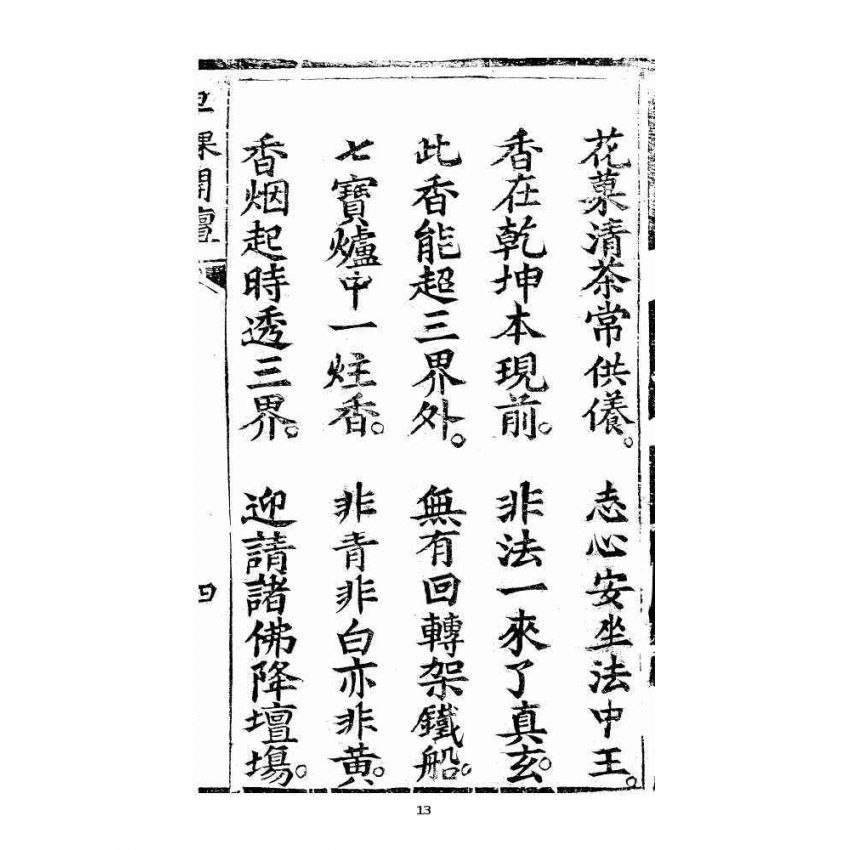 花菓清茶常供養。志心安坐法中王。
香在乾坤本現前。非法一來了真玄。
此香能超三界外。無有回轉架鐵船。
七寶爐中一炷香。非青非白亦非黃。
香烟起時透三界。迎請諸佛降壇場。
課開壇
四
13